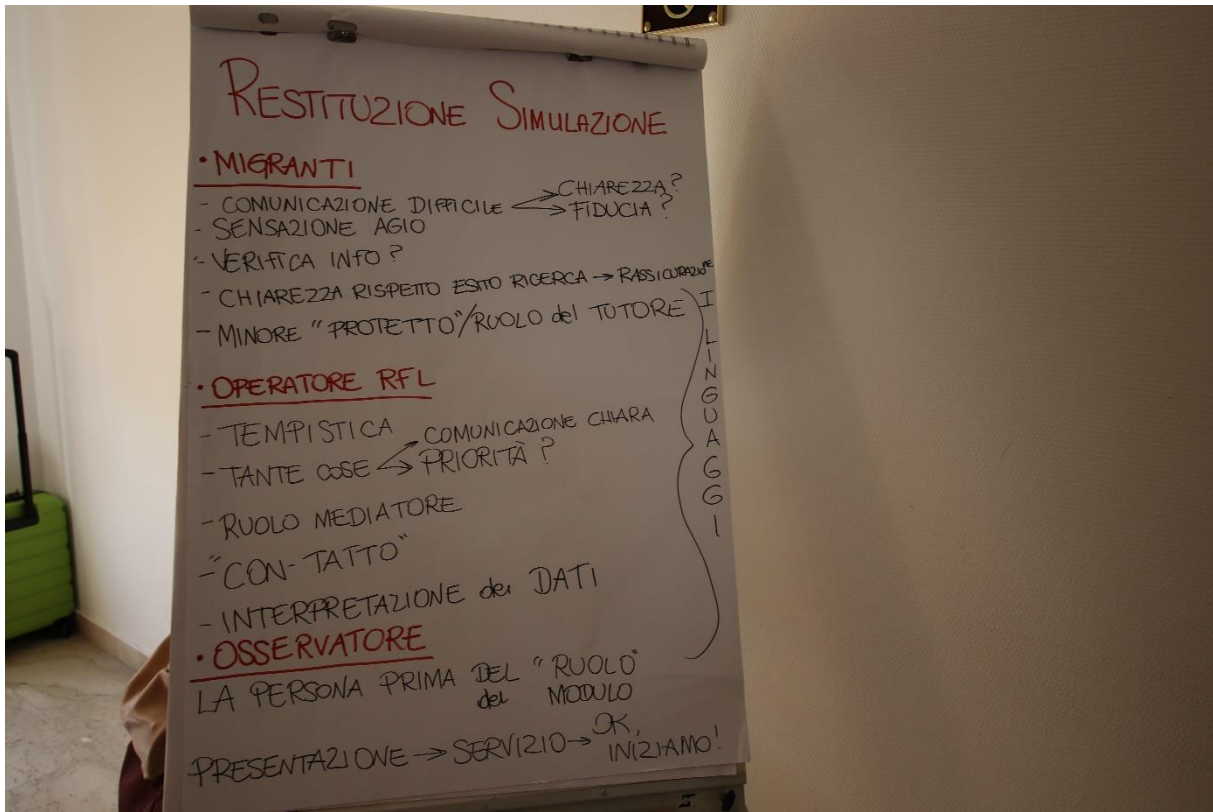 RESTITUZIONE SIMULAZIONE
• MIGRANTI
- COMUNICAZIONE DIFFICILE → CHIAREZZA?
→ FIDUCIA?
- SENSAZIONE AGIO
- VERIFICA INFO?
- CHIAREZZA RISPETTO ESITO RICERCA → RASSICURAZIONE
- MINORE "PROTETTO"/RUOLO del TUTORE
• OPERATORE RFL
- TEMPISTICA
- TANTE COSE → COMUNICAZIONE CHIARA
→ PRIORITÀ?
- RUOLO MEDIATORE
- "CON-TATTO"
- INTERPRETAZIONE dei DATI
I LINGUAGGI
• OSSERVATORE
LA PERSONA PRIMA DEL "RUOLO"
del MODULO
PRESENTAZIONE → SERVIZIO → OK,
INIZIAMO!